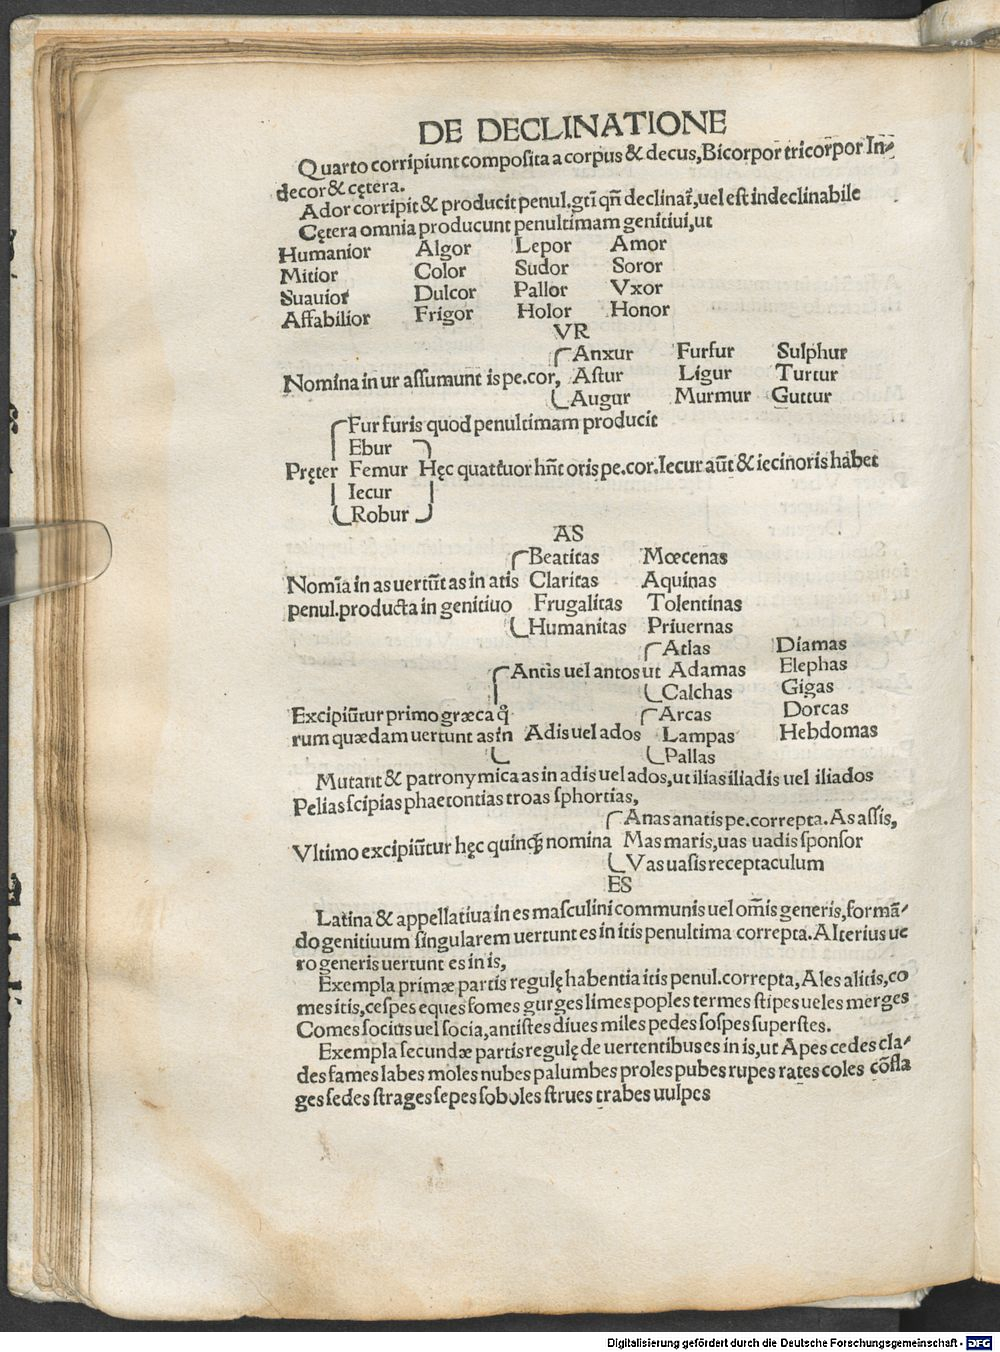 DE DECLINATIONE
Quarto corripiunt composita a corpus & decus, Bicorpor tricorpor In⸗
decor & cętera.
Ador corripit & producit penul. gtĩ qñ declinat̃, uel est indeclinabile
Cętera omnia producunt penultimam genitiui, ut
Humanior Algor Lepor Amor
Mitior Color Sudor Soror
Suauior Dulcor Pallor Vxor
Affabilior Frigor Holor Honor
VR
Anxur Furfur Sulphur
Nomina in ur assumunt is pe. cor, Astur Ligur Turtur
Augur Murmur Guttur
Fur furis quod penultimam producit
Ebur
Pręter Femur Hęc quattuor hñt oris pe. cor. Iecur aũt & iecinoris habet
Iecur
Robur
AS
Beatitas Mœcenas
Nomĩa in as uertũt as in atis Claritas Aquinas
penul. producta in genitiuo Frugalitas Tolentinas
Humanitas Priuernas
Atlas Diamas
Antis uel antos ut Adamas Elephas
Calchas Gigas
Excipiũtur primo græca q̃ Arcas Dorcas
rum quædam uertunt as in Adis uel ados Lampas Hebdomas
Pallas
Mutant & patronymica as in adis uel ados, ut ilias iliadis uel iliados
Pelias scipias phaetontias troas sphortias,
Anas anatis pe. correpta. As assis,
Vltimo excipiũtur hęc quinq; nomina Mas maris, uas uadis sponsor
Vas uasis receptaculum
ES
Latina & appellatiua in es masculini communis uel om̃is generis, formã⸗
do genitiuum singularem uertunt es in itis penultima correpta. Alterius ue
ro generis uertunt es in is,
Exempla primæ partis regulę habentia itis penul. correpta, Ales alitis, co
mes itis, cespes eques fomes gurges limes poples termes stipes ueles merges
Comes socius uel socia, antistes diues miles pedes sospes superstes.
Exempla secundæ partis regulę de uertentibus es in is, ut Apes cedes cla⸗
des fames labes moles nubes palumbes proles pubes rupes rates coles cõfla
ges sedes strages sepes soboles strues trabes uulpes
Digitalisierung gefördert durch die Deutsche Forschungsgemeinschaft - DFG